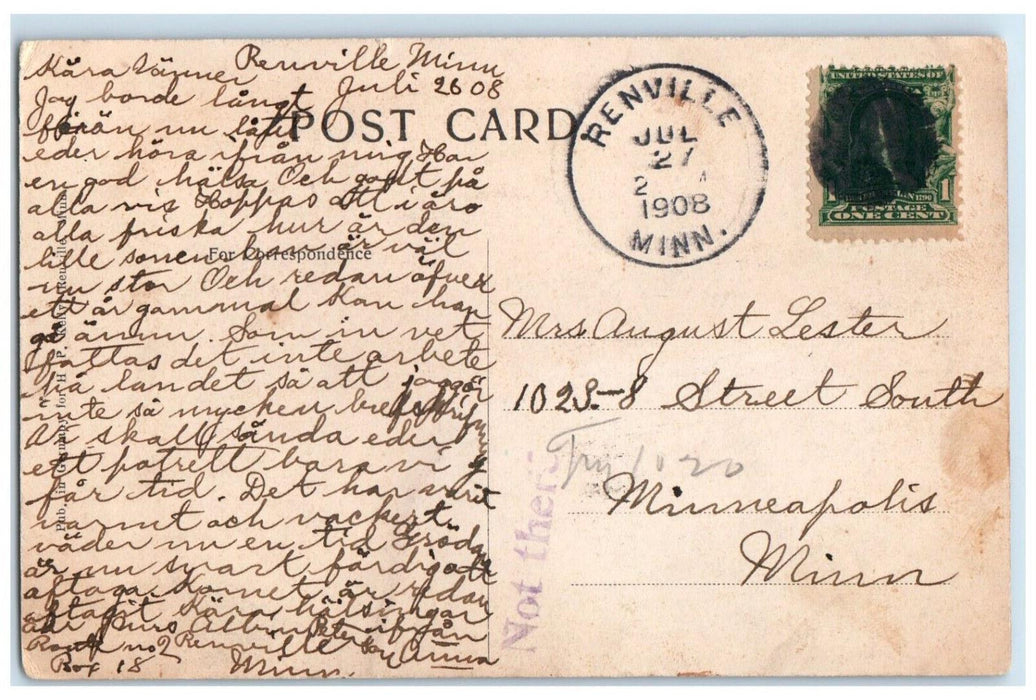 Renville Minn
Juli 26 08
Kära Vänner
Jag borde långt
förän nu låtit
eder höra ifrån mig Har
en god hälsa Och godt på
alla vis Hoppas att i äro
alla friska hur är den
lille sonen han är väl
nu stor Och redan öfver
ett år gammal Kan han
gå ännu. Som in vet
fattas det inte arbete
på landet så att jag gör
inte så mycken
Vi skall sända eder
ett potrett bara vi
får tid. Det har varit
varmt och vackert
väder nu en tid Gröda
är nu snart färdig att
aftaga Kornet är redan
aftagit Kära hälsingar
ifrån
Anna
Mrs Albin
Route no 2 Renville
Box 18 Minn
POST CARD
For Correspondence
RENVILLE
JUL
27
2
1908
MINN.
UNITED STATES OF
POSTAGE
ONE CENT
1
Mrs. August Lester
1023-8 Street South
Try 1020
Minneapolis
Minn
Not there